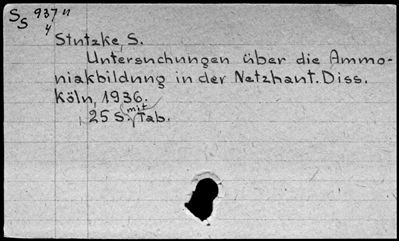 Ss 937 n
4
Stutzke, S.
Untersuchungen über die Ammo-
niakbildung in der Netzhaut. Diss.
Köln, 1936.
25 S. mit Tab.